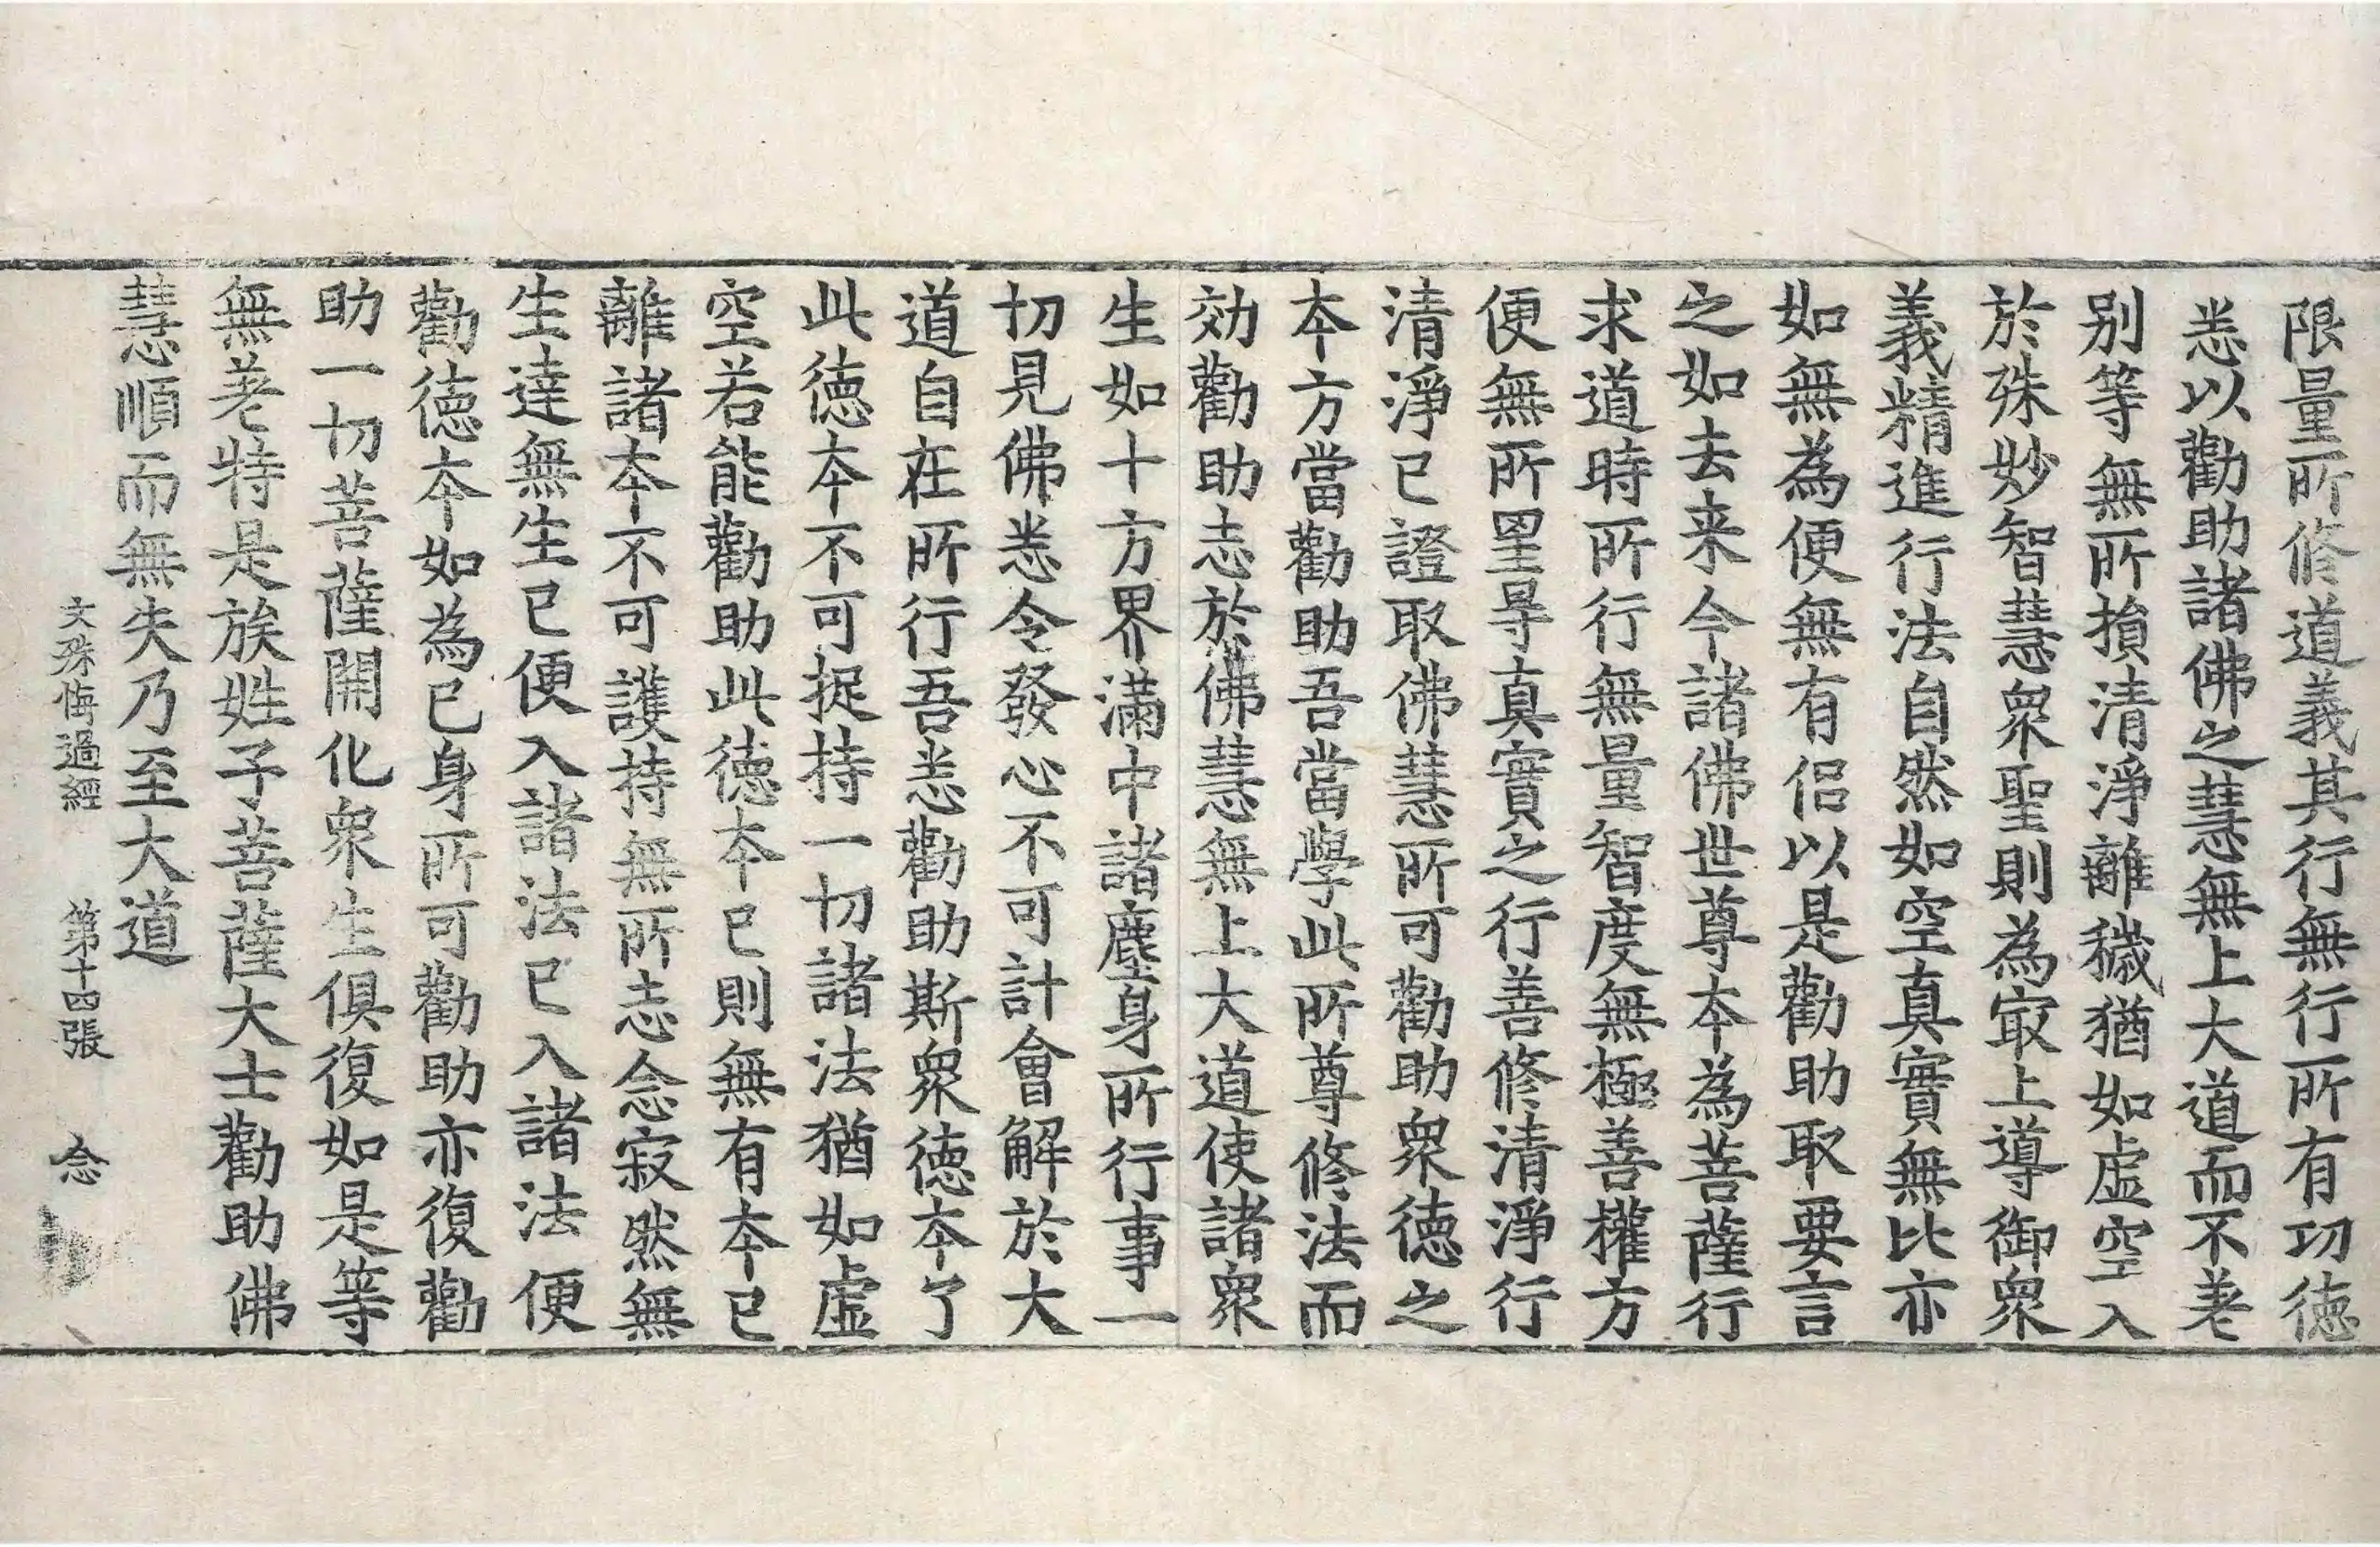 限量所修道義其行無行所有功徳
悉以勸助諸佛之慧無上大道而不差
别等無所損清淨離穢猶如虚空入
於殊妙智慧衆聖則為㝡上導御衆
義精進行法自然如空真實無比亦
如無為便無有侣以是勸助取要言
之如去来今諸佛世尊本為菩薩行
求道時所行無量智度無極善權方
便無所罣㝵真實之行行善修清淨行
清淨已證取佛慧所可勸助衆徳之
本方當勸助吾當學此所尊修法而
効勸助志於佛慧無上大道使諸衆
生如十方界滿中諸塵身所行事一
切見佛悉令發心不可計會解於大
道自在所行吾悉勸助斯衆徳本了
此徳本不可捉持一切諸法猶如虚
空若能勸助此徳本已則無有本已
離諸本不可護持無所志念寂然無
生達無生已便入諸法已入諸法便
勸徳本如為已身所可勸助亦復勸
助一切菩薩開化衆生俱復如是等
無差特是族姓子菩薩大士勸助佛
慧順而無失乃至大道
文殊悔過經 第十四張 念